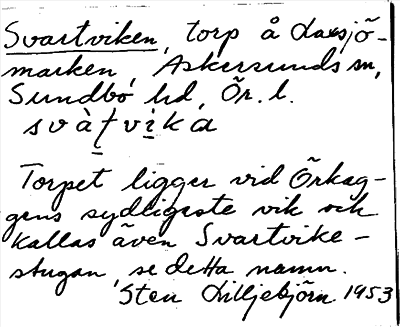 Svartviken, torp å Laxsjö-
marken, Askersunds sn,
Sundbo hd, Ör. l.
svàṭvi̱ka
Torpet ligger vid Örkag-
gens sydligaste vik och
kallas även Svartvike-
stugan, se detta namn.
Sten Lilljebjörn 1953